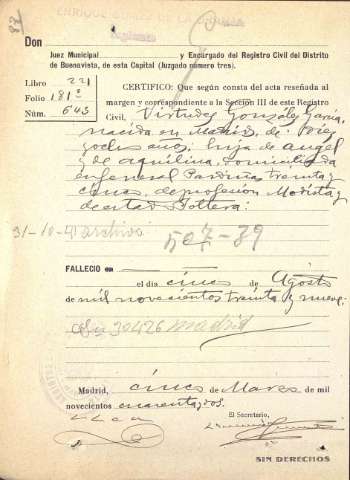 87
ENRIQUE GOMEZ DE LA GRANJA
Don
Juez Municipal y Encargado del Registro Civil del Distrito
de Buenavista, de esta Capital (Juzgado número tres).
Libro 221
Folio 181º
Núm. 643
CERTIFICO: Que según consta del acta reseñada al
margen y correspondiente a la Sección III de este Registro
Civil, Virtudes González García,
nacida en Madrid, de diez
y ocho años, hija de Angel
y de Aquilina, domiciliada
en General Pardiñas treinta y
cinco, de profesión Modista y
de estado Soltera:
31-10-41 archivo
507-39
FALLECIO en
el día cinco de Agosto
de mil novecientos treinta y nueve:
30426 madrid
Madrid, cinco de Marzo de mil
novecientos cuarenta y dos.
El Secretario,
SIN DERECHOS